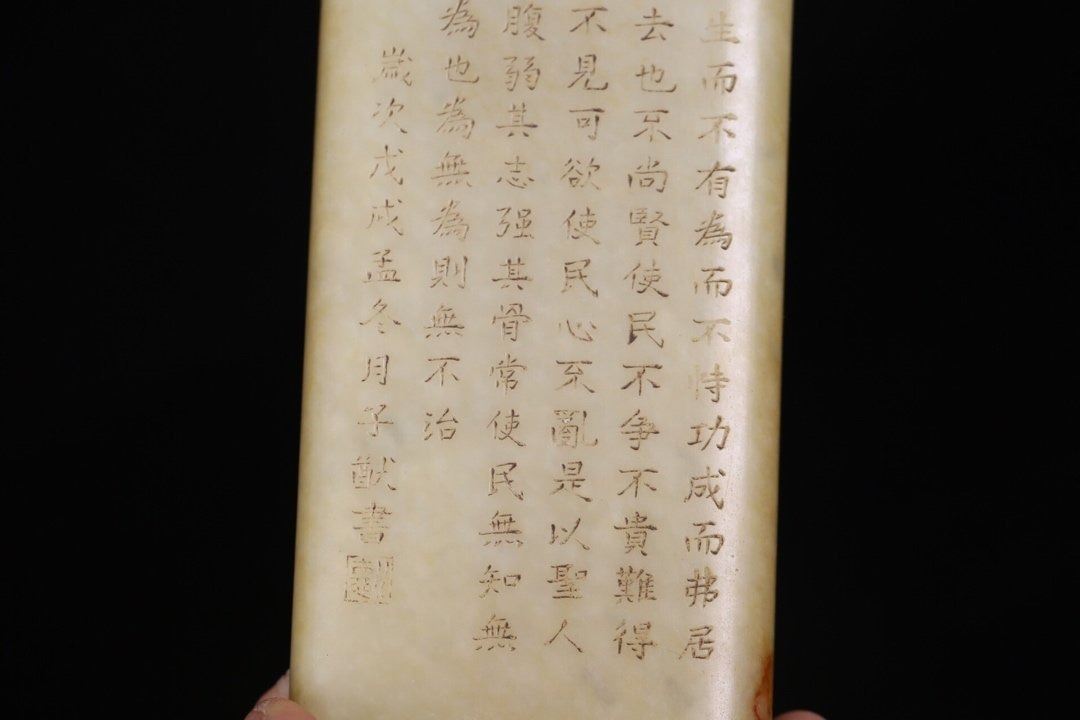 生而不有為而不恃功成而弗居
去也不尚賢使民不争不貴難得
不見可欲使民心不亂是以聖人
腹弱其志强其骨常使民無知無
為也為無為則無不治
歲次戊戌孟冬月子猷書